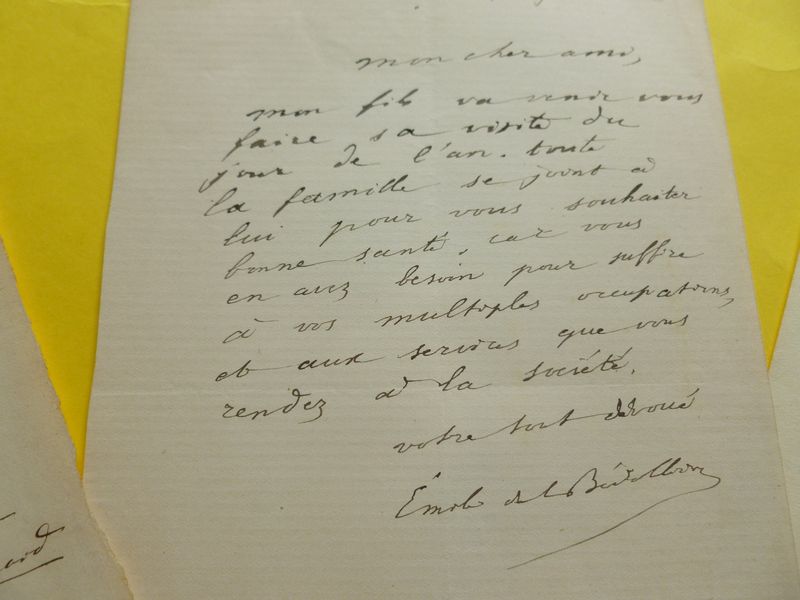 mon cher ami,
mon fils va venir vous
faire sa visite du
jour de l'an. toute
la famille se joint à
lui pour vous souhaiter
bonne santé, car vous
en avez besoin pour suffire
à vos multiples occupations,
et aux services que vous
rendez à la société.
votre tout dévoué
Émile de la Bédollière